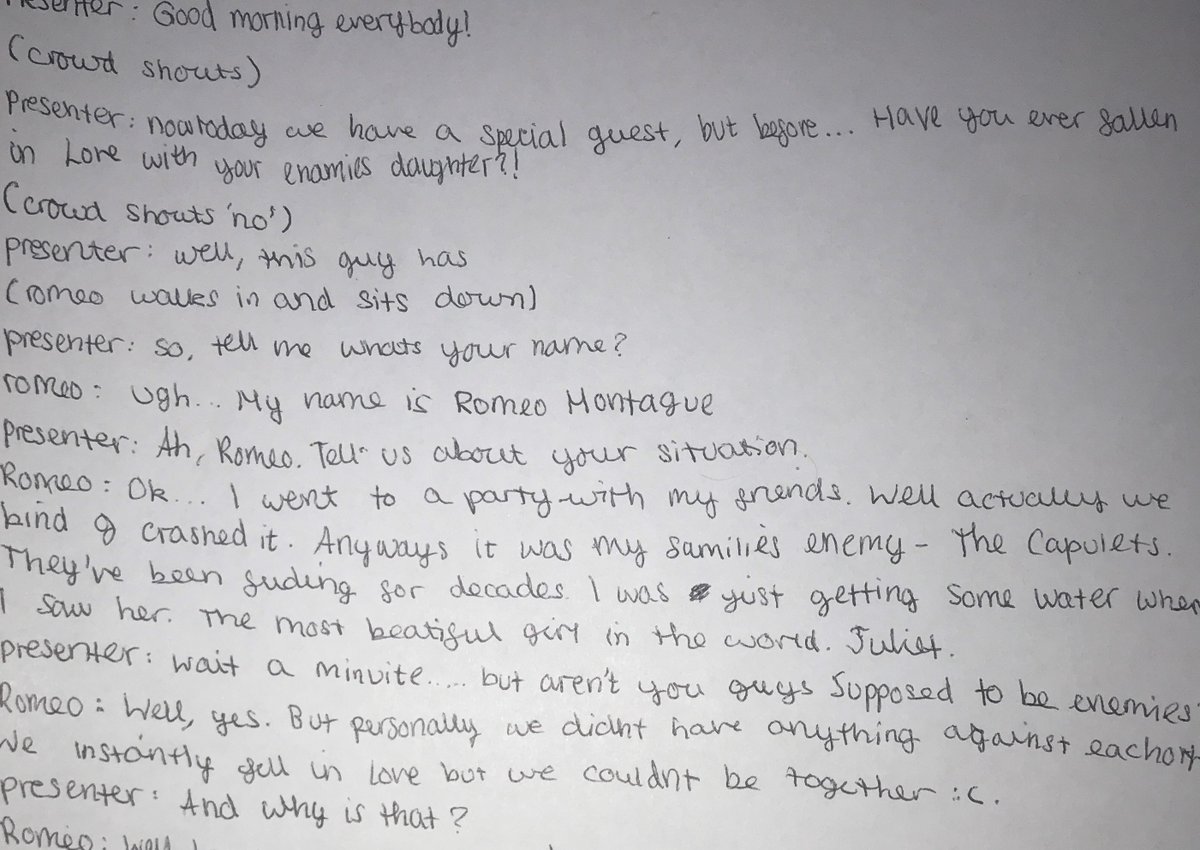 Presenter: Good morning everybody!
(crowd shouts)
Presenter: now today we have a special guest, but before... Have you ever fallen
in Love with your enamies daughter?!
(crowd shouts 'no')
presenter: well, this guy has
(romeo walks in and sits down)
presenter: so, tell me whats your name?
romeo: Ugh... My name is Romeo Montague
presenter: Ah, Romeo. Tell us about your situation.
Romeo: Ok... I went to a party with my friends. Well actually we
kind of crashed it. Anyways it was my familie's enemy - The Capulets.
They've been fuding for decades. I was just getting some water when
I saw her. The most beatiful girl in the world. Juliet.
presenter: wait a minuite..... but aren't you guys supposed to be enemies
Romeo: Well, yes. But personally we didnt have anything against eachoth
We instantly fell in love but we couldnt be together :c.
presenter: And why is that?
Romeo: Well